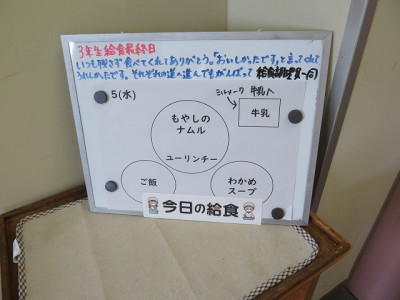 3年生給食最終日
いつも残さず食べてくれてありがとう。「おいしかったです」と言ってくれて
うれしかたです。それぞれの道へ進んでもがんばって 給食調理員一同
5(水)
ミルメーク 牛乳へ
牛乳
もやしの
ナムル
ユーリンチー
ご飯
わかめ
スープ
今日の給食